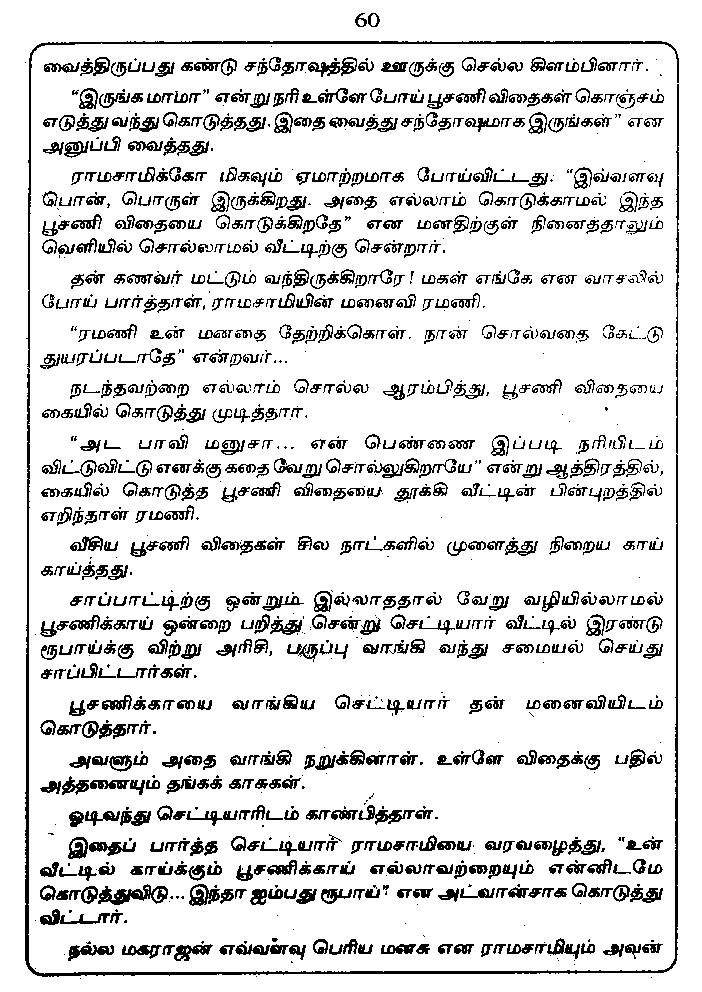 60
வைத்திருப்பது கண்டு சந்தோஷத்தில் ஊருக்கு செல்ல கிளம்பினார்.
“இருங்க மாமா” என்று நரி உள்ளே போய் பூசணி விதைகள் கொஞ்சம்
எடுத்து வந்து கொடுத்தது. இதை வைத்து சந்தோஷமாக இருங்கள்” என
அனுப்பி வைத்தது.
ராமசாமிக்கோ மிகவும் ஏமாற்றமாக போய்விட்டது. “இவ்வளவு
பொன், பொருள் இருக்கிறது. அதை எல்லாம் கொடுக்காமல் இந்த
பூசணி விதையை கொடுக்கிறதே” என மனதிற்குள் நினைத்தாலும்
வெளியில் சொல்லாமல் வீட்டிற்கு சென்றார்.
தன் கணவர் மட்டும் வந்திருக்கிறாரே! மகள் எங்கே என வாசலில்
போய் பார்த்தாள், ராமசாமியின் மனைவி ரமணி.
“ரமணி உன் மனதை தேற்றிக்கொள். நான் சொல்வதை கேட்டு
துயரப்படாதே” என்றவர்...
நடந்தவற்றை எல்லாம் சொல்ல ஆரம்பித்து, பூசணி விதையை
கையில் கொடுத்து முடித்தார்.
“அட பாவி மனுசா... என் பெண்ணை இப்படி நரியிடம்
விட்டுவிட்டு எனக்கு கதை வேறு சொல்லுகிறாயே” என்று ஆத்திரத்தில்,
கையில் கொடுத்த பூசணி விதையை தூக்கி வீட்டின் பின்புறத்தில்
எறிந்தாள் ரமணி.
வீசிய பூசணி விதைகள் சில நாட்களில் முளைத்து நிறைய காய்
காய்த்தது.
சாப்பாட்டிற்கு ஒன்றும் இல்லாததால் வேறு வழியில்லாமல்
பூசணிக்காய் ஒன்றை பறித்து சென்று செட்டியார் வீட்டில் இரண்டு
ரூபாய்க்கு விற்று அரிசி, பருப்பு வாங்கி வந்து சமையல் செய்து
சாப்பிட்டார்கள்.
பூசணிக்காயை வாங்கிய செட்டியார் தன் மனைவியிடம்
கொடுத்தார்.
அவளும் அதை வாங்கி நறுக்கினாள். உள்ளே விதைக்கு பதில்
அத்தனையும் தங்கக் காசுகள்.
ஓடிவந்து செட்டியாரிடம் காண்பித்தாள்.
இதைப் பார்த்த செட்டியார் ராமசாமியை வரவழைத்து, “உன்
வீட்டில் காய்க்கும் பூசணிக்காய் எல்லாவற்றையும் என்னிடமே
கொடுத்துவிடு... இந்தா ஐம்பது ரூபாய்” என அட்வான்சாக கொடுத்து
விட்டார்.
நல்ல மகராஜன் எவ்வளவு பெரிய மனசு என ராமசாமியும் அவன்